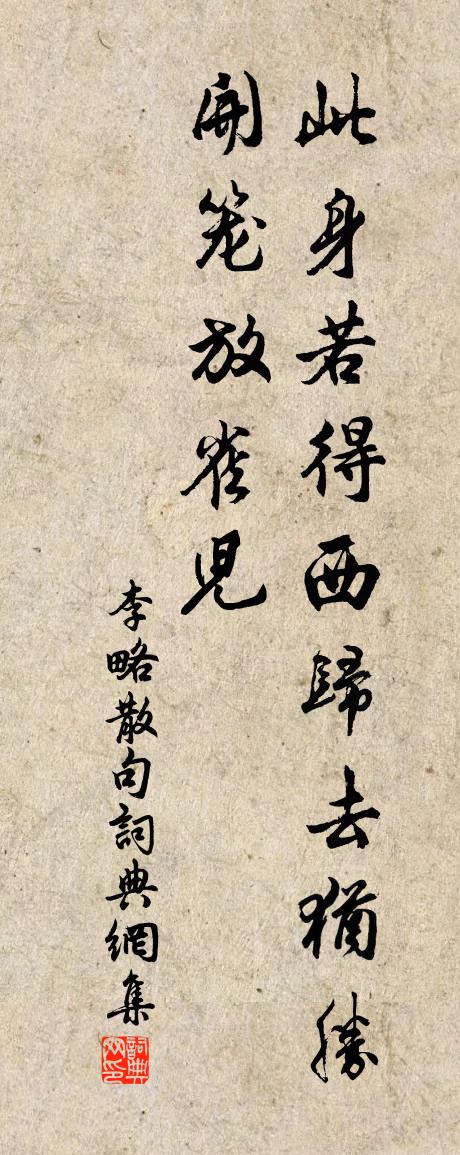 此身若得西歸去猶勝
開笼放雀兒
李略散句詞典網集
詞典网印